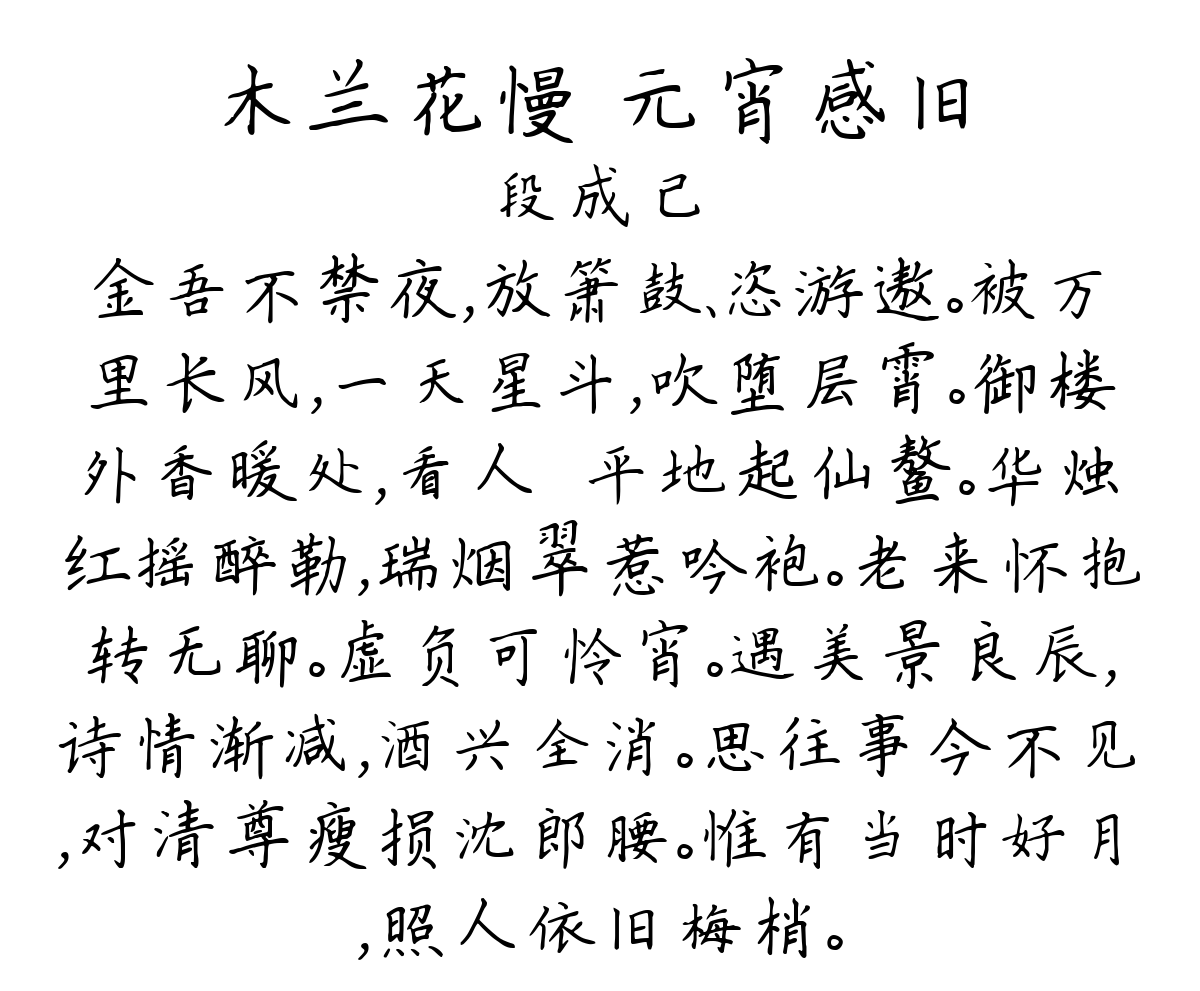 木兰花慢 元宵感旧
段成己
金吾不禁夜,放箫鼓、恣游遨。被万
里长风,一天星斗,吹堕层霄。御楼
外香暖处,看人 平地起仙鳌。华烛
红摇醉勒,瑞烟翠惹吟袍。老来怀抱
转无聊。虚负可怜宵。遇美景良辰,
诗情渐减,酒兴全消。思往事今不见
,对清尊瘦损沈郎腰。惟有当时好月
,照人依旧梅梢。